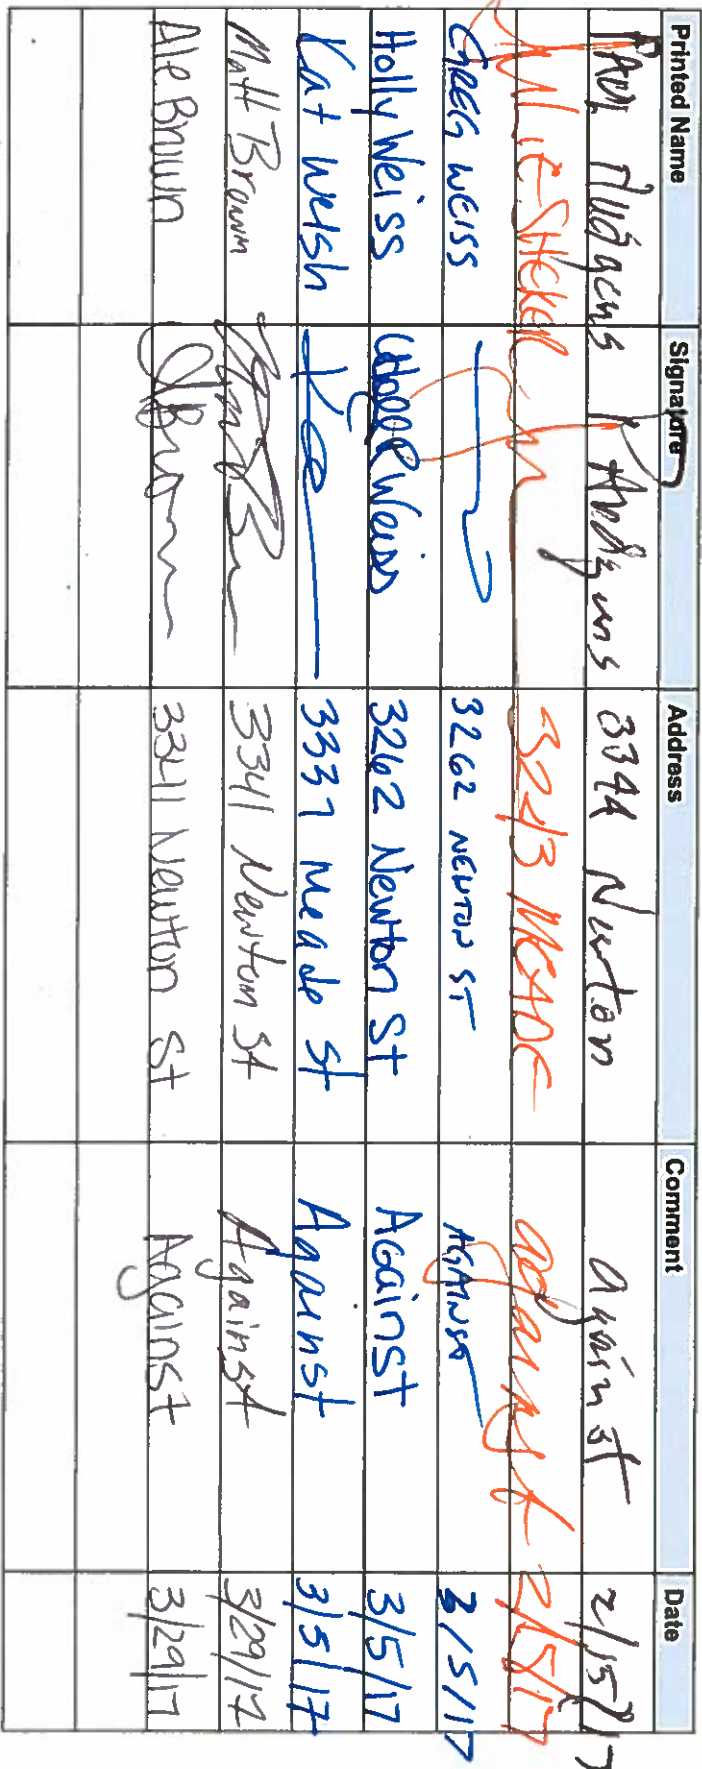 Printed Name Signature Address Comment Date
Hudgens Hudgens 3344 Newton against 2/15/17
JULIE 3243 MEADE against 2/15/17
GREG WEISS 3262 NEWTON ST AGAINST 3/5/17
Holly Weiss Weiss 3262 Newton St AGainst 3/5/17
Kat Welsh 3337 Meade St Against 3/5/17
Matt Brown 3341 Newton St Against 3/29/17
Ale Brown Brown 3341 Newton St Against 3/29/17